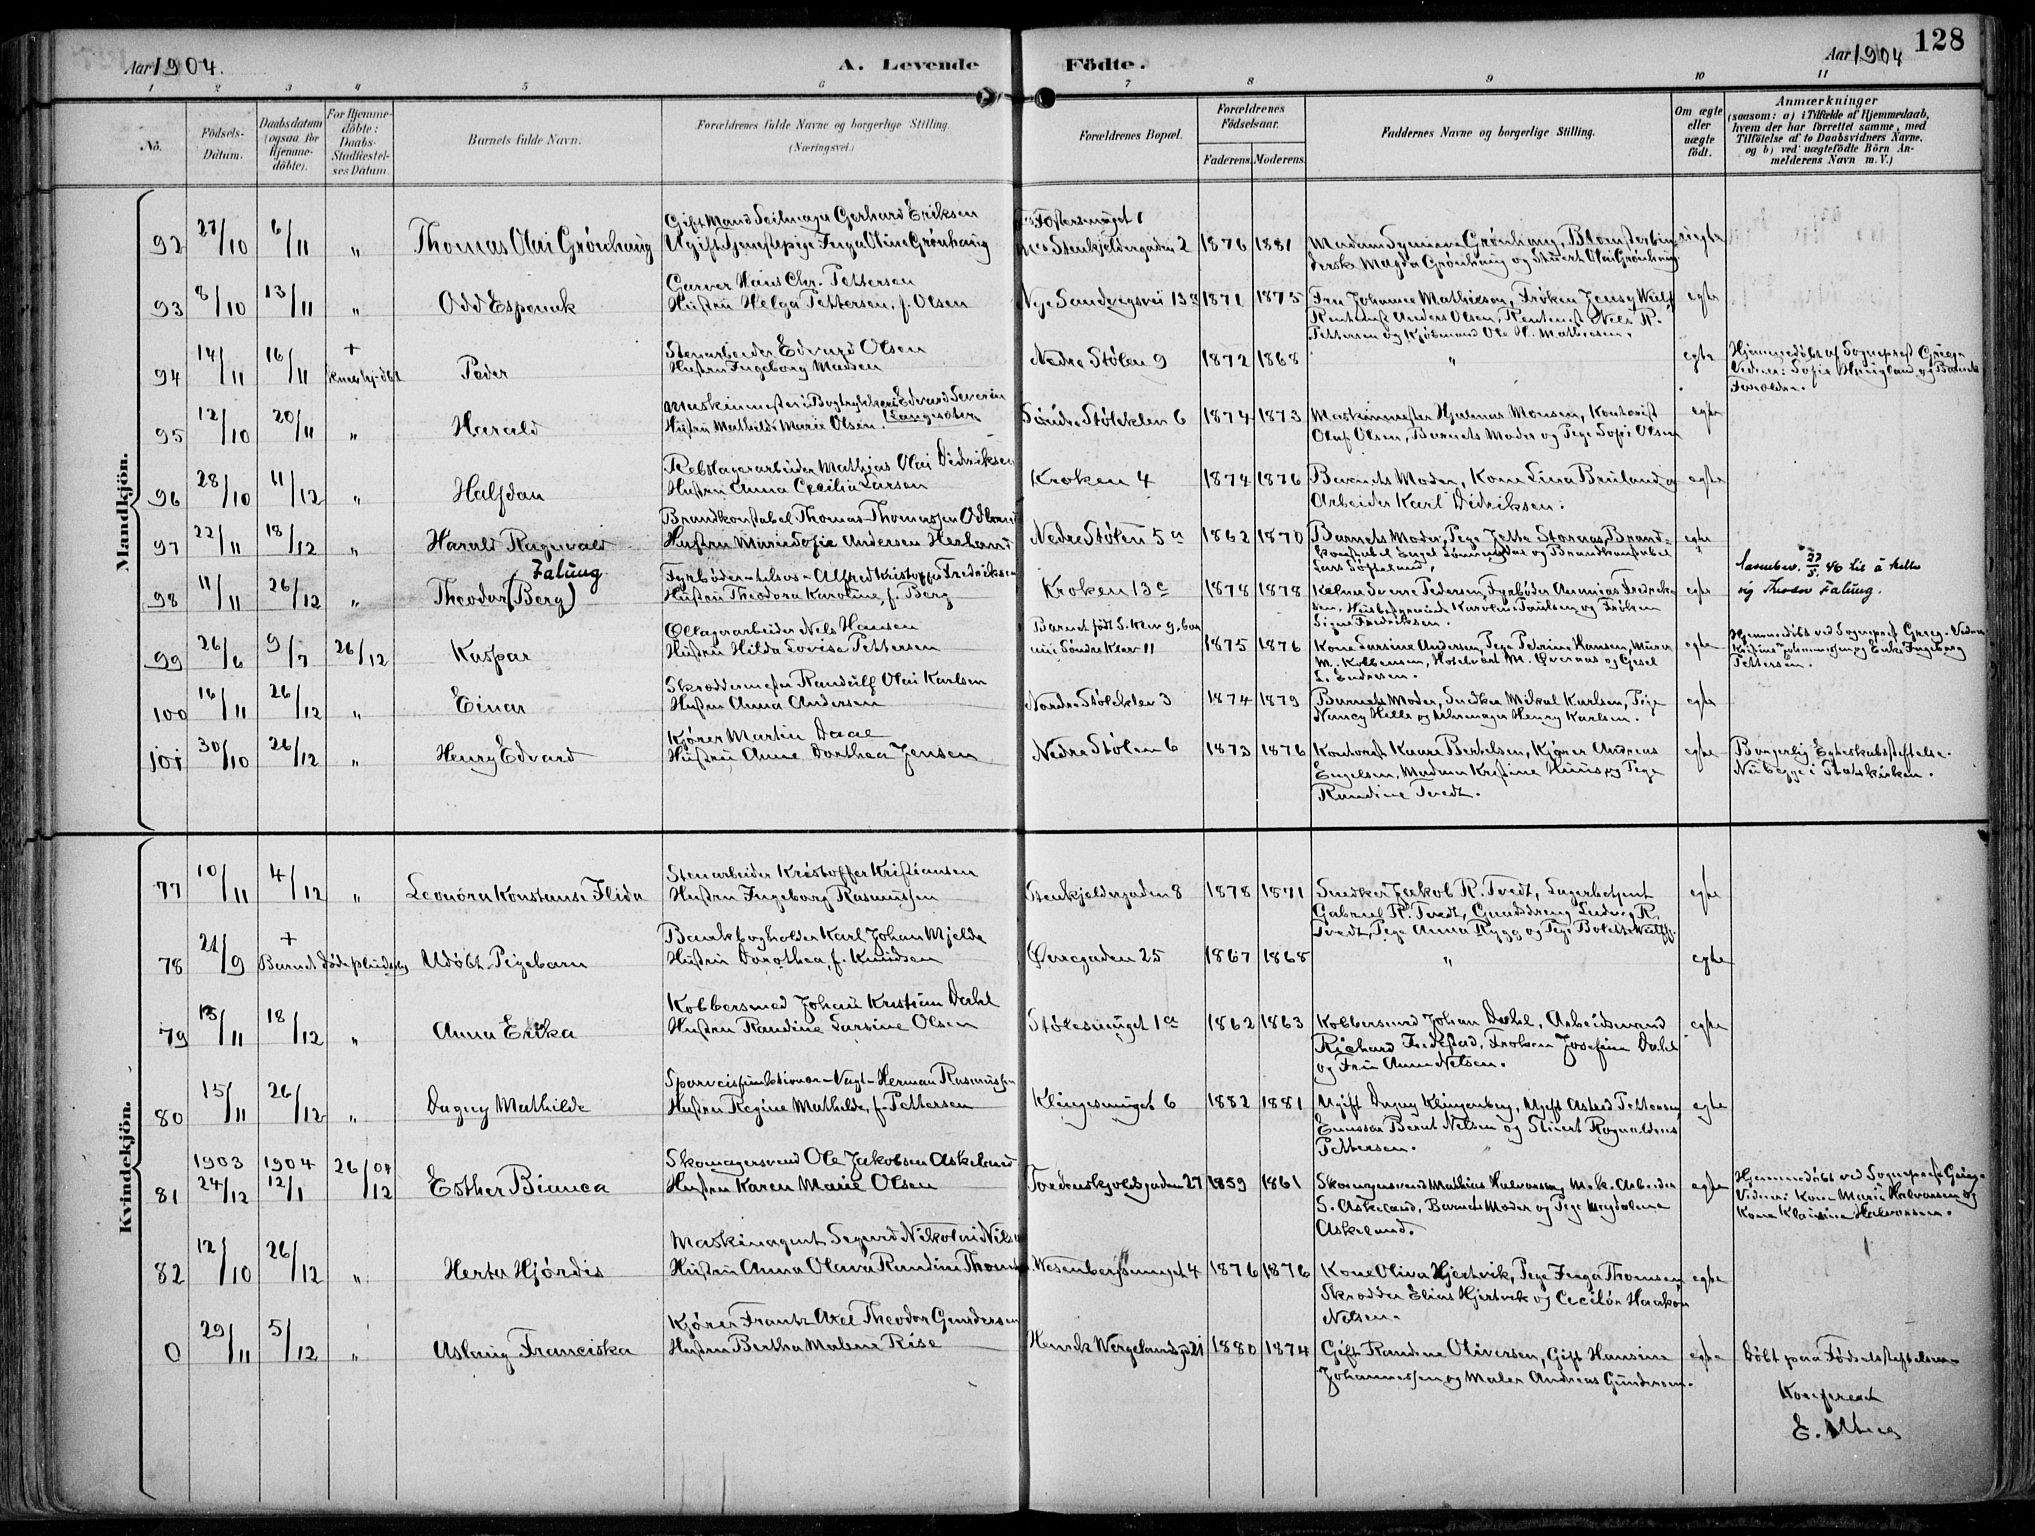 128
Aar 1904.
A. Levende
Födte.
Aar 1904
1 2 3 4 5 6 7 8 9 10 11
No.
Födsels-
Datum.
Daabsdatum
(ogsaa for
Hjemme-
döbte).
For Hjemme-
döbte:
Daabs-
Stadfæstel-
ses Datum.
Barnets fulde Navn.
Forældrenes fulde Navne og borgerlige Stilling.
(Næringsvei.)
Forældrenes Bopæl.
Forældrenes
Födselsaar.
Faderens. Moderens.
Faddernes Navne og borgerlige Stilling.
Om ægte
eller
uægte
födt.
Anmærkninger
(saasom: a) i Tilfælde af Hjemmedaab,
hvem der har forrettet samme, med
Tilföielse af to Daabsvidners Navne.
og b) ved uægtefödte Börn An-
melderens Navn m. V.)
Mandkjön.
92 27/10 6/11 " Thomas Olai Grönhaug
Gift Mand Seilmager Gerhard Eriksen
Ugift Tjenestepige Inga Oline Grönhaug
Stenkjeldergaden 2 1876 1881
Grönhaug, Blomsterbin-
derske Magda Grönhaug og Stuert Olai Grönhaug
uægte
93 8/10 13/11 " Odd Espervik
Garver Hans Chr. Pettersen
Hustru Helga Pettersen, f. Olsen
Nye Sandvigsvei 13a 1871 1875
Fru Johanne Mathiesen, Fröken Jensy Wulff
Anders Olsen, Nels R.
Pettersen og Kjöbmand Ole H. Mathiesen.
egte
94 14/11 16/11 + Peder
Stenarbeider Edvard Olsen
Hustru Ingeborg Madsen
Nedre Stölen 9 1872 1868 " egte
Hjemmedöbt af Sognepræst Grieg.
Vidner: Sofie og Barnets
Forældre.
95 12/10 20/11 " Harald
Maskinmester i Bogtrykkeri Edvard Severin
Langesæter
Hustru Mathilde Marie Olsen.
Söndre Stölekleu 6 1874 1873
Maskinmester Hjalmar Monsen, Kontorist
Olaf Olsen, Barnets Moder og Pige Sofie Olsen
egte
96 28/10 11/12 " Halfdan
Rebslagerarbeider Mathias Olai Didriksen
Hustru Anna Cecilia Larsen
Kroken 4 1874 1876
Barnets Moder, Kone Lina Bruland og
Arbeider Karl Didriksen.
egte
97 22/11 18/12 " Harald Ragnvald
Brandkonstabel Thomas Thomassen
Hustru Marie Sofie Andersen Herland
Nedre Stölen 5a 1862 1870
Barnets Moder, Pige Jetta Storaas, Brand-
konstabel Engel og Brandkonstabel
Lars Softeland,
egte
98 11/11 26/12 " Theodor (Berg)
Falung
Fyrböder Alfred Kristoffer Fredriksen
Hustru Theodora Karoline, f. Berg
Kroken 13c 1878 1878
Kelner Sverre Pedersen, Fyrböder Ananias Fredrik-
sen, Husbestyrerinde Karoline Paulsen og Fröken
Signe Fredriksen.
egte
22/5. 40 til å kalle
sig Theodor Falung.
99 26/6 9/7 26/12 Kaspar
Ölagerarbeider Nels Hansen
Hustru Hilda Lovise Pettersen
Barnet födt S. Klev 9, bor
nu Söndre Klev 11 1875 1876
Kone Larsine Andersen, Pige Petrine Hansen, Murer
M. Kolbensen, M. Övernes og Gesel
L. Endresen.
egte
Hjemmedöbt ved Sognepræst Grieg. Vidner:
Kristine Johannesen og Enke Ingeborg
Pettersen.
100 16/11 26/12 " Einar
Skræddermester Randulf Olai Karlsen
Hustru Anna Andersen
Nordre Stölekleu 3 1874 1879
Barnets Moder, Snedker Mikal Karlsen, Pige
Nancy Helle og Uhrmager Henry Karlsen.
egte
101 30/10 26/12 " Henry Edvard
Kjörer Martin Daae
Hustru Anne Dorthea Jensen
Nedre Stölen 6 1873 1876
Kontorist Kaare Bertelsen, Kjörer Andreas
Engelsen, Madam Kristine Huus og Pige
Randine Tvedt.
egte
Borgerlig Egteskabsstiftelse.
Nu begge i Statskirken.
Kvindekjön.
77 10/11 4/12 " Leonora Konstanse Flida
Stenarbeider Kristoffer Kristiansen
Hustru Ingeborg Rasmussen
Stenkjeldergaden 8 1878 1871
Snedker Jakob R. Tvedt, Lagerbetjent
Gabriel R. Tvedt, Gaardsdreng Ludvig R.
Tvedt, Pige Anna Rygg og Pige Bolette Wulff.
egte
78 21/9 + Barnet döde pludselig Udöbt Pigebarn
Bankbogholder Karl Johan Mjelde
Hustru Dorothea, f. Knudsen
Övregaden 25 1867 1868 " egte
79 13/11 18/12 " Anna Erika
Kobbersmed Johan Kristian Dahl
Hustru Randine Larsine Olsen
Stölesmuget 1a 1862 1863
Kobbersmed Johan Dahl, Arbeidsmand
Richard Fredestad, Fröken Josefine Dahl
og Fru Anna Nelsen.
egte
80 15/11 26/12 " Dagny Mathilde
Sporveisfunktionær - Vagt - Herman Rasmussen
Hustru Regine Mathilde, f. Pettersen
Klingesmuget 6 1882 1881
Ugift Dagny Klingenberg, Ugift Astrid Pettersen,
Bernt Nelsen og Stuert Rognaldsens
Pettersen.
egte
81 1903 24/12 1904 12/1 26/12 04 Esther Bianca
Skomagersvend Ole Jakobsen Askeland
Hustru Karen Marie Olsen
Tordenskjoldsgaden 27 1859 1861
Skomagersvend Mathias Halvorsen, Mek. Arbeider
S. Askeland, Barnets Moder og Pige Magdalene
Askeland.
egte
Hjemmedöbt ved Sognepræst Grieg.
Vidner: Kone Marie Halvorsen og
Kone Klausine Halvorsen.
82 12/10 26/12 " Herta Hjördis
Maskinagent Sigurd Nikolai Nilsen
Hustru Anna Olava Randine Thomsen
Wesenbergsmuget 4 1876 1876
Kone Oliva Hjertvik, Pige Inga Thomsen,
Skrædder Elias Hjertvik og Haakon
Nelsen.
egte
0 29/11 5/12 " Aslaug Franciska
Kjörer Frantz Axel Theodor Gundersen
Hustru Bertha Malene Rise
Henrik Wergelandsg. 21 1880 1874
Gift Randine Oliversen, Gift Hansine
Johannessen og Maler Andreas Gundersen.
egte
Döbt paa Födselsstiftelsen
Konfereret